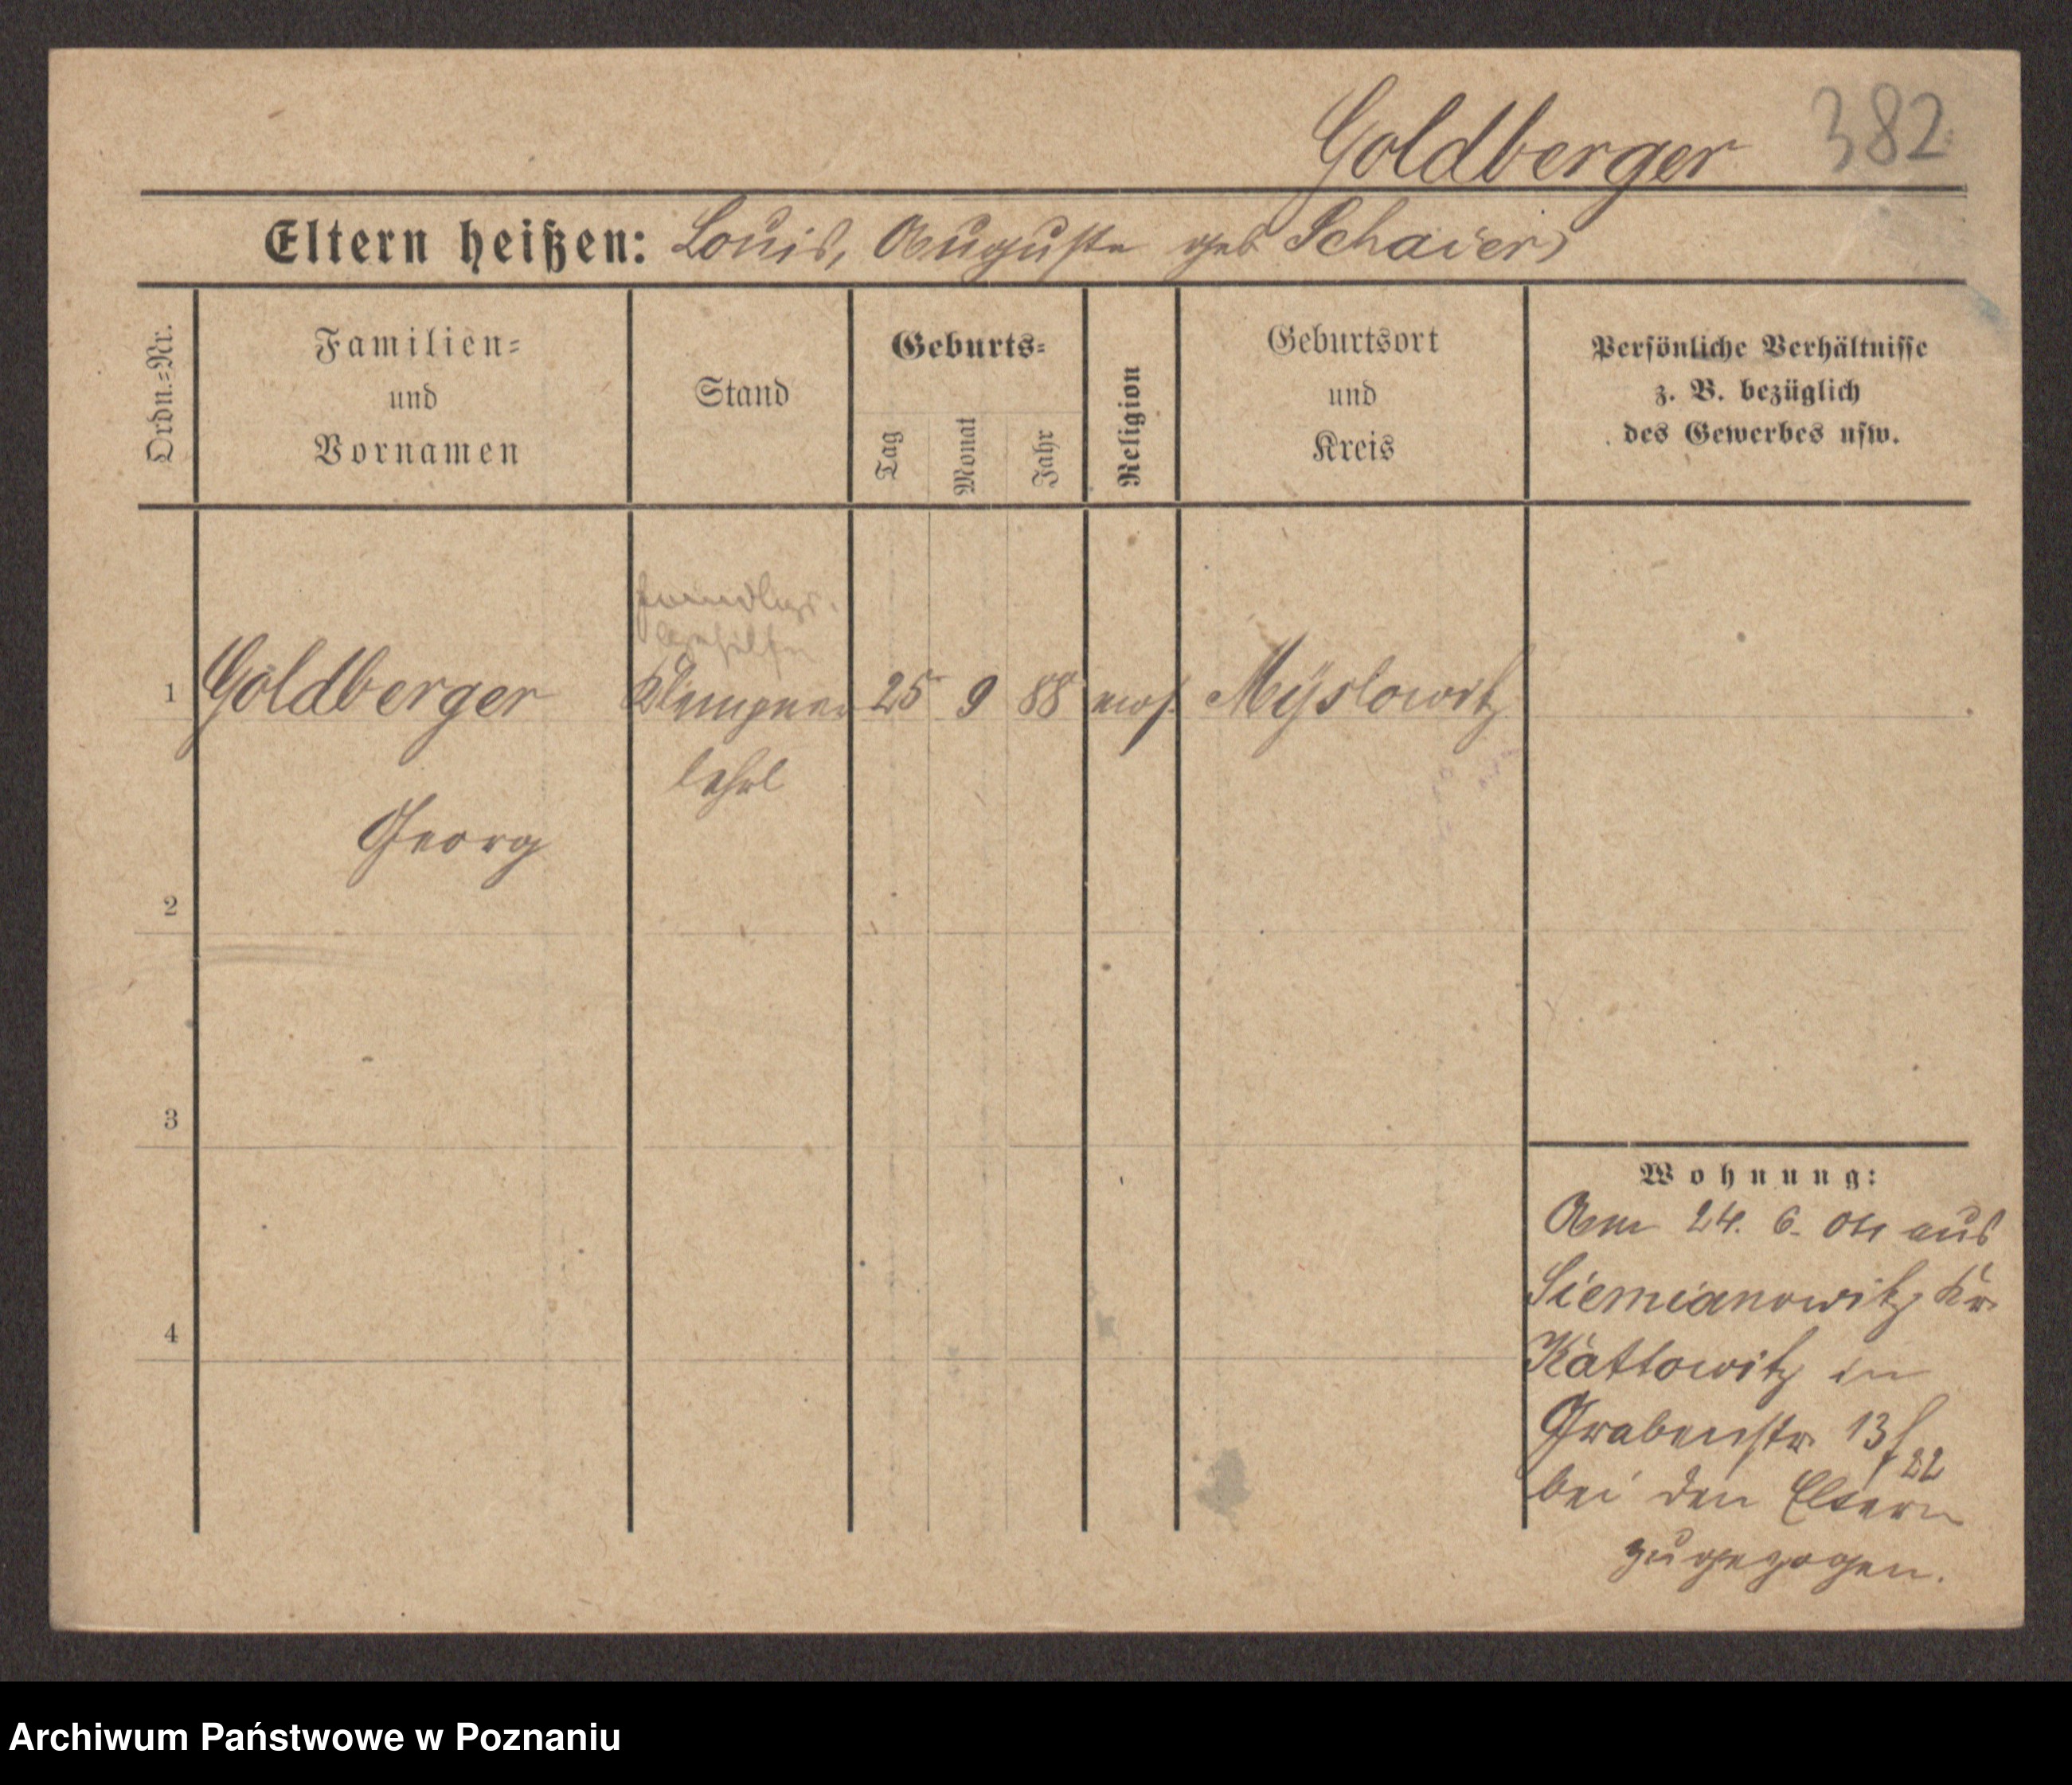 Goldberger 382
Eltern heißen: Louis, Auguste geb Schaier
Ordn.=Nr.
Familien=
und
Vornamen
Stand
Geburts=
Tag
Monat
Jahr
Religion
Geburtsort
und
Kreis
Persönliche Verhältnisse
z. B. bezüglich
des Gewerbes usw.
Handlgs.
Gehilfe
1 Goldberger Klempner 25 9 88 mos. Mÿslowitz
lehrl
Georg
2
3
4
Wohnung:
Am 24. 6. 04 aus
Siemianowitz Kr.
Kattowitz in
Grabenstr. 13
22
bei den Eltern
zugezogen.
Archiwum Państwowe w Poznaniu